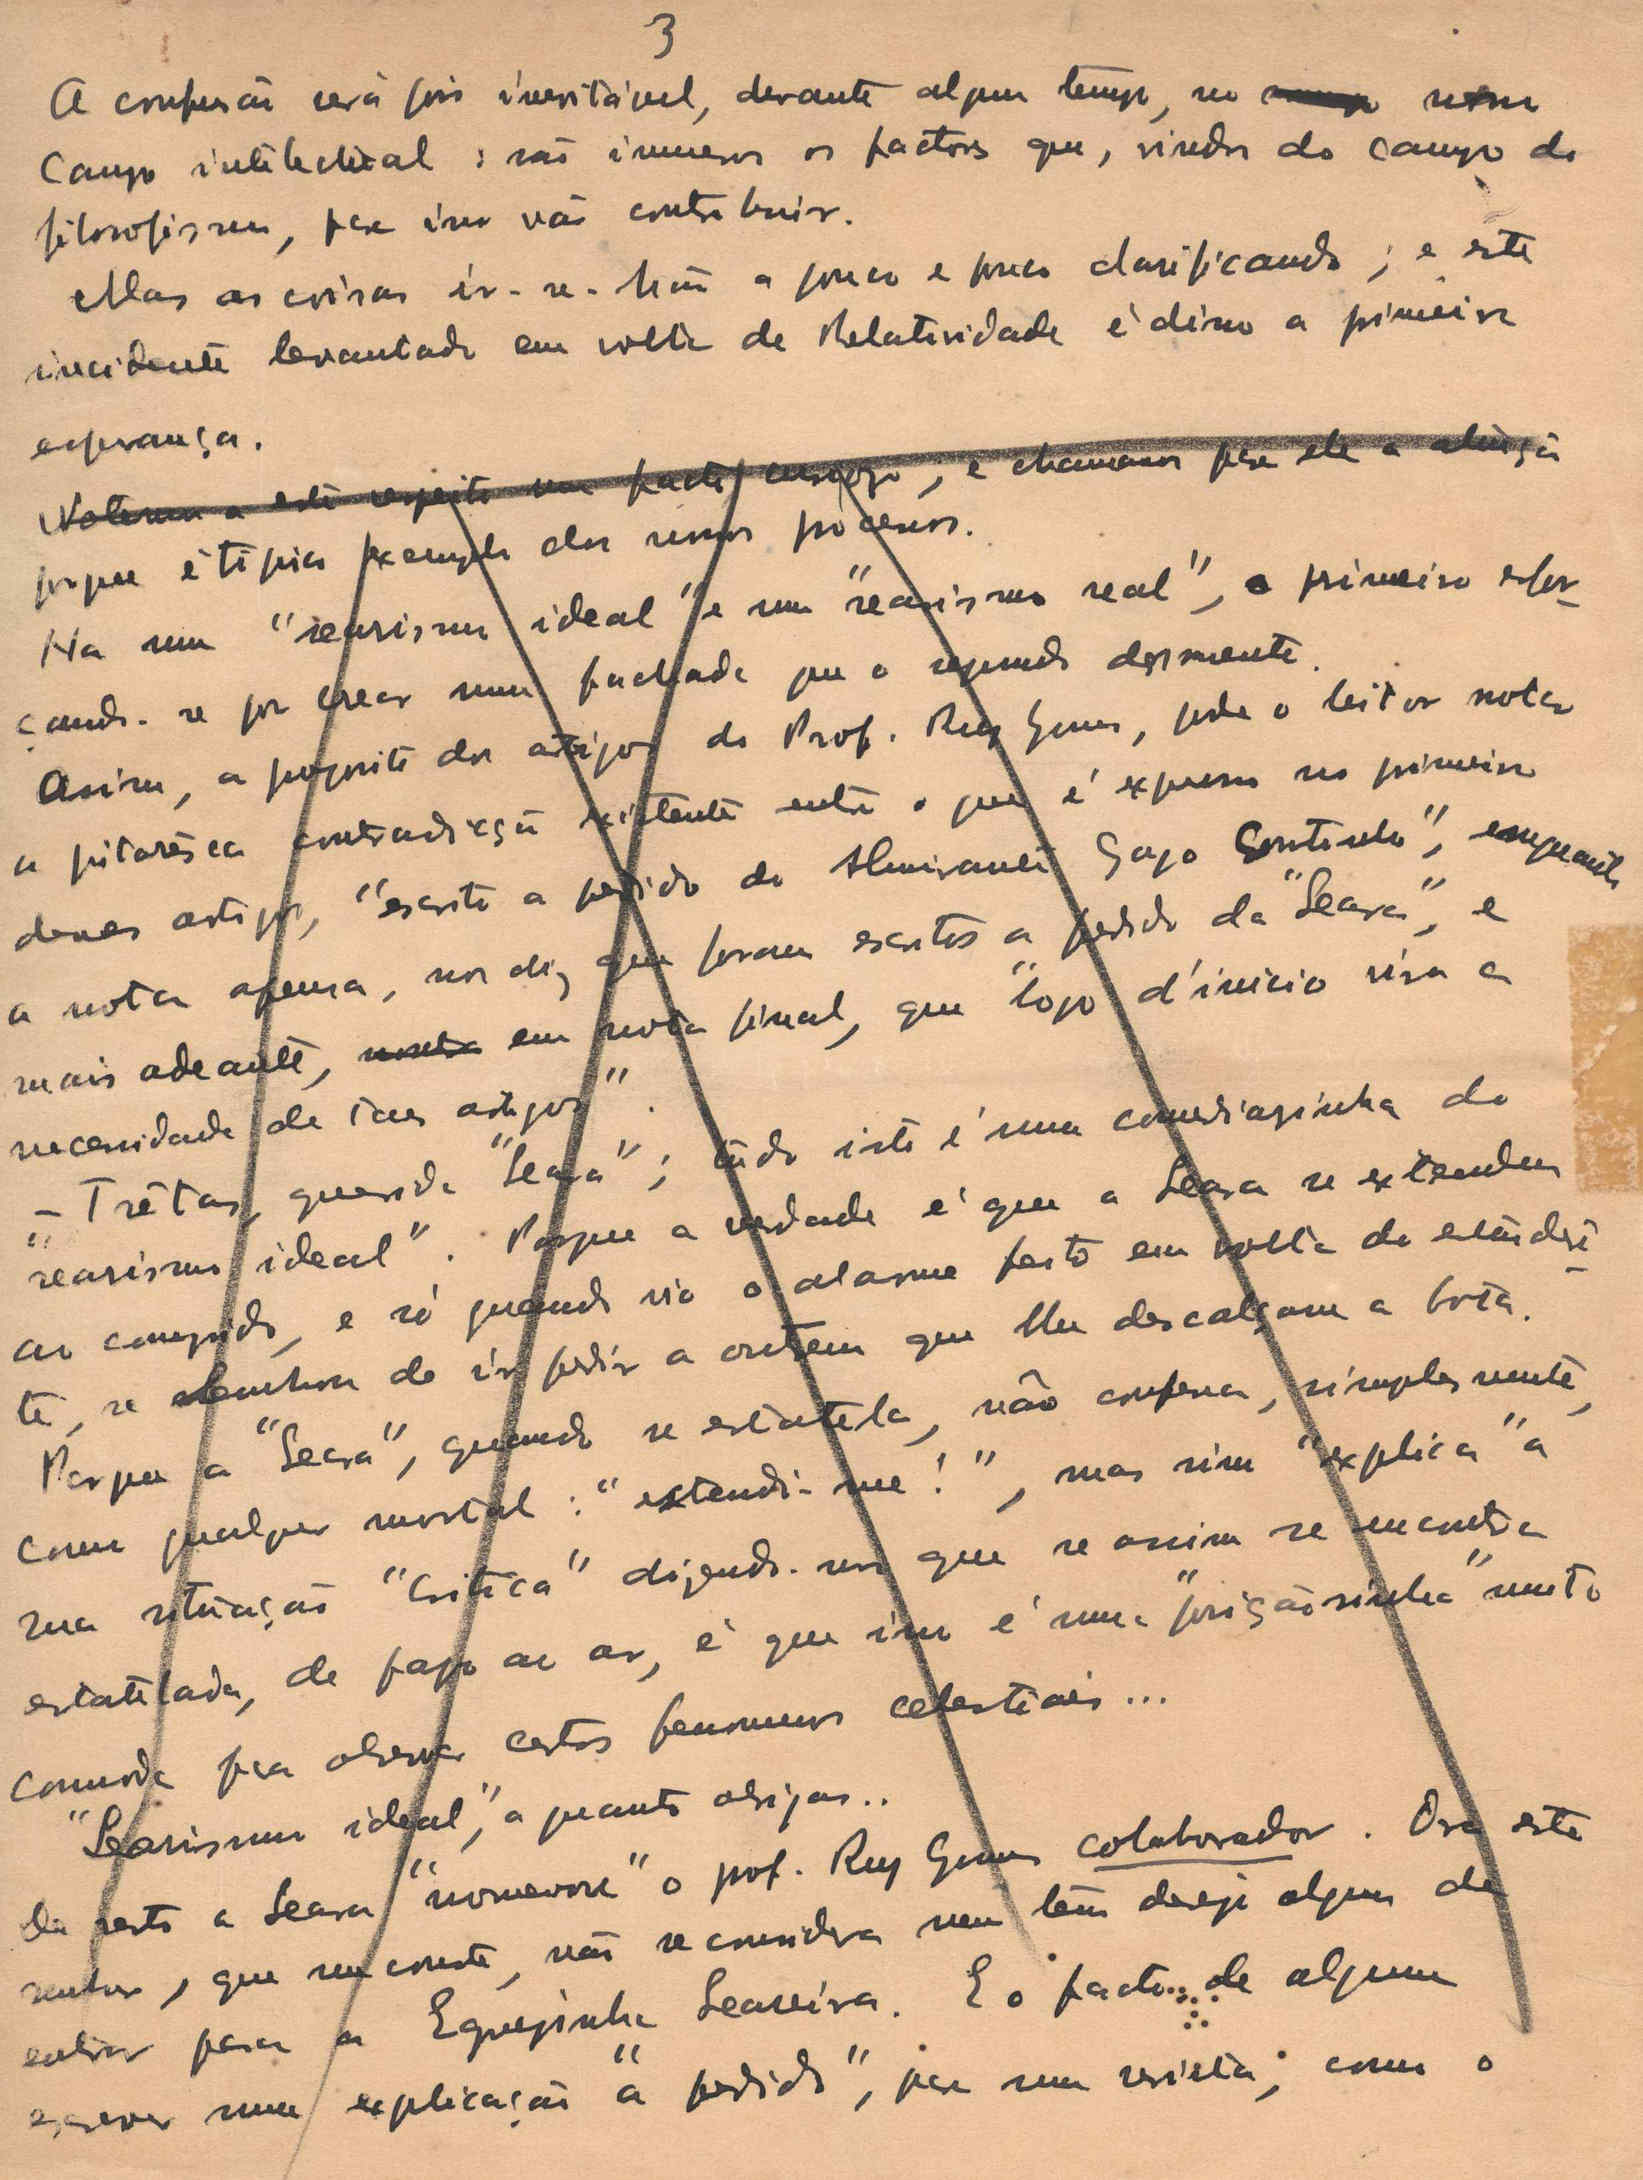 3
A confusão será pois inevitável, durante algum tempo, no nosso
campo intelectual: são imensos os factores que, vindos do campo do
filosofismo, para isso vão contribuir.
Mas as coisas ir-se-hão a pouco e pouco clarificando; e este
incidente levantado em volta da Relatividade é disso a primeira
esperança.
Notemos a este respeito um facto curioso; e chamamos para ele a atenção
porque é típico exemplo dos seus processos.
Ha um "searismo ideal" e um "searismo real", o primeiro esfor-
çando-se por crear uma fachada que o segundo desmente.
Assim, a proposito dos artigos do Prof. Ruy Gomes, pode o leitor notar
a pitoresca contradicção existente entre o que é expresso no primeiro
desses artigos, "escrito a pedido do Almirante Gago Coutinho", emquanto
a nota apensa, nos diz que foram escritos a pedido da "Seara", e
mais adeante, em nota final, que "logo d'inicio vira a
necessidade de taes artigos".
- Trêtas, querida "Seara"; tudo isto é uma comediasinha do
"searismo ideal". Porque a verdade é que a Seara se extendeu
ao comprido, e só quando viu o alarme feito em volta do estender
te, se lembrou de ir pedir a outrem que lhe descalçasse a bota.
Porque a "Seara", quando se estatela, não confessa, simplesmente,
como qualquer mortal: "estendi-me!", mas sim "explica" a
sua situação "critica" dizendo-nos que se assim se encontra
estatelada, de papo ao ar, é que isso é uma "posiçãosinha" muito
comoda para observar certos fenomenos celestiais...
"Searismo ideal", a quanto obrigas..
De resto a Seara "nomeou" o prof. Ruy Gomes colaborador. Ora este
senhor, que me conste, não se considera nem tem desejo algum de
entrar para a Egrejinha Seareira. E o facto de alguem
escrever uma explicação "a pedido", para uma revista, como o